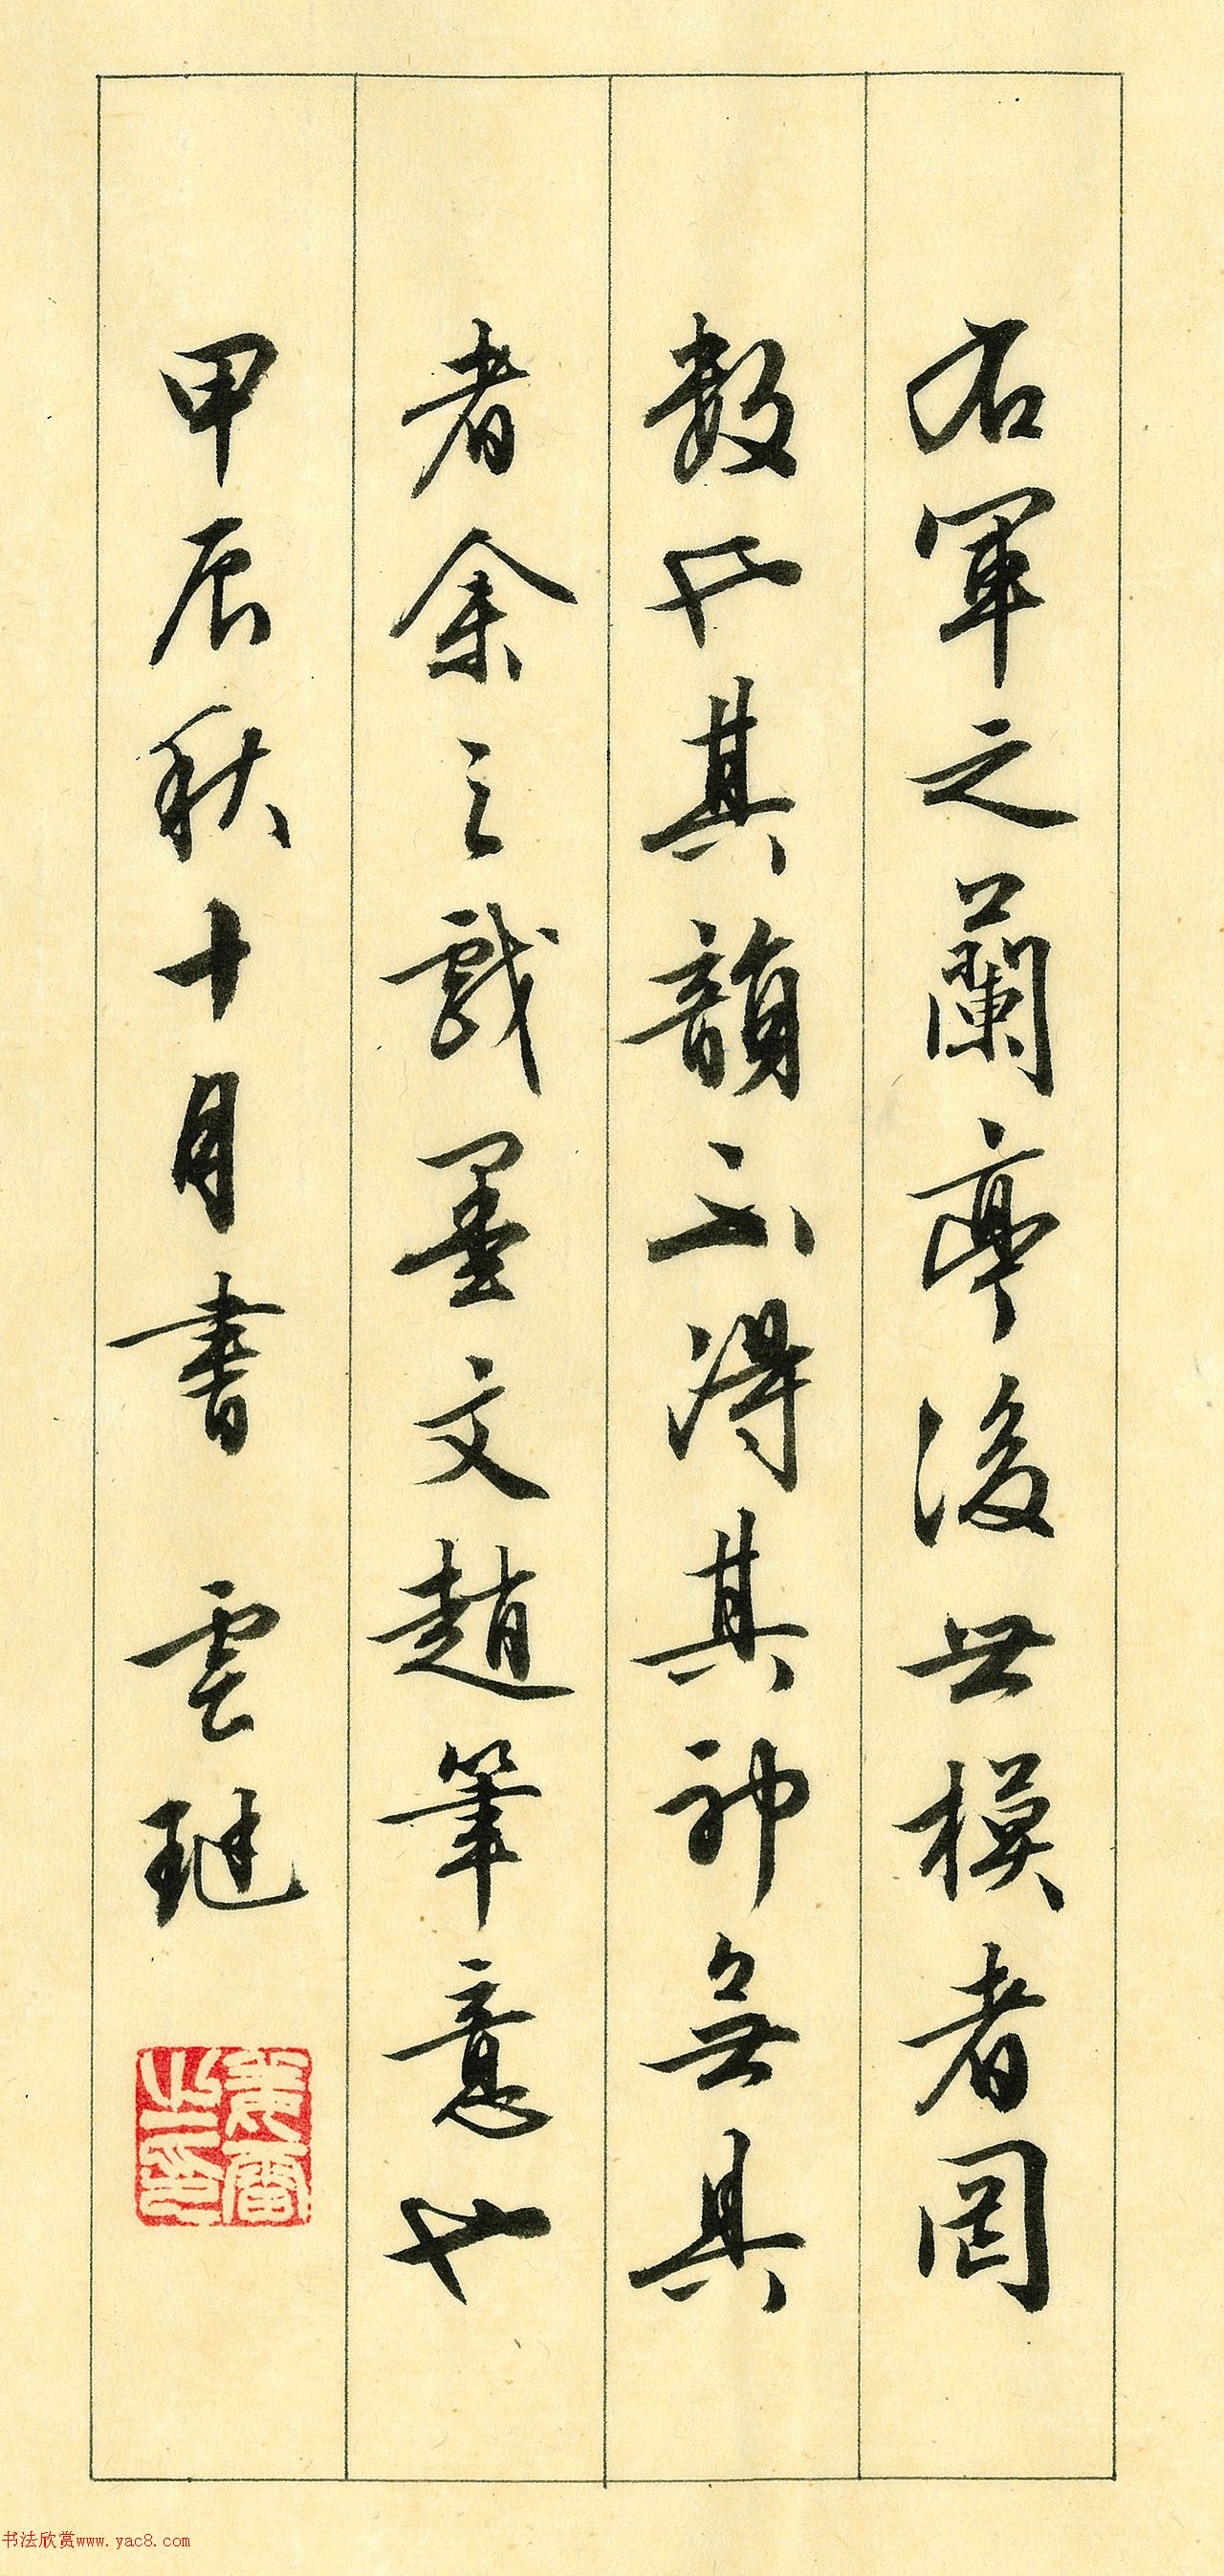 右軍之蘭亭後世模者罔
數也其韻不得其神無其
者余之戲墨文趙筆意也
甲辰秋十月書 雲璉
書法欣赏www.yac8.com